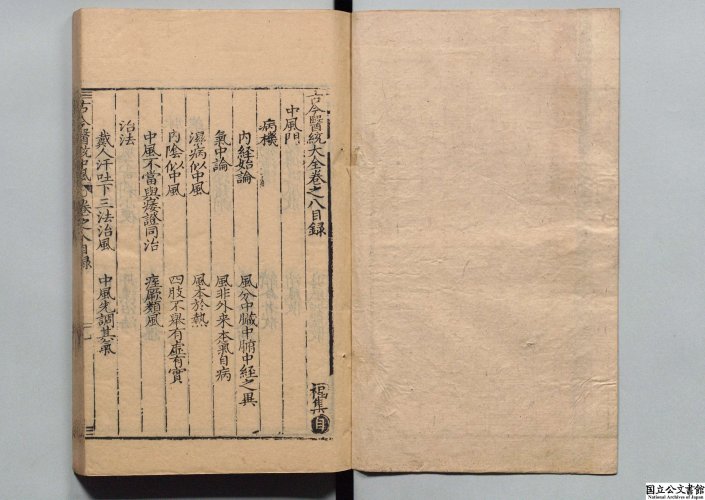 古今醫統大全卷之八目錄
福集 目
中風門
病機
內經始論 風分中臟中腑中經之異
氣中論 風非外来本氣自病
濕病似中風 風本於熱
內陰似中風 四肢不舉有虛有實
中風不當與痿證同治 痓厥類風
治法
戴人汗吐下三法治風 中風先調其氣
古今醫統 卷之八目錄
国立公文書館
National Archives of Japan